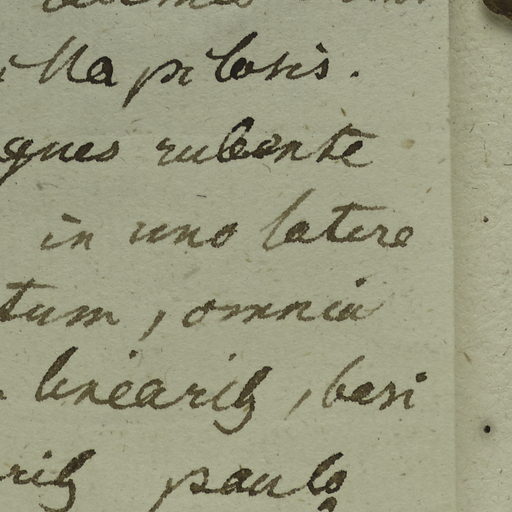 illa pilosis.
ques rubente
in uno latere
tum, omnia
linearib, basi
rib paulo